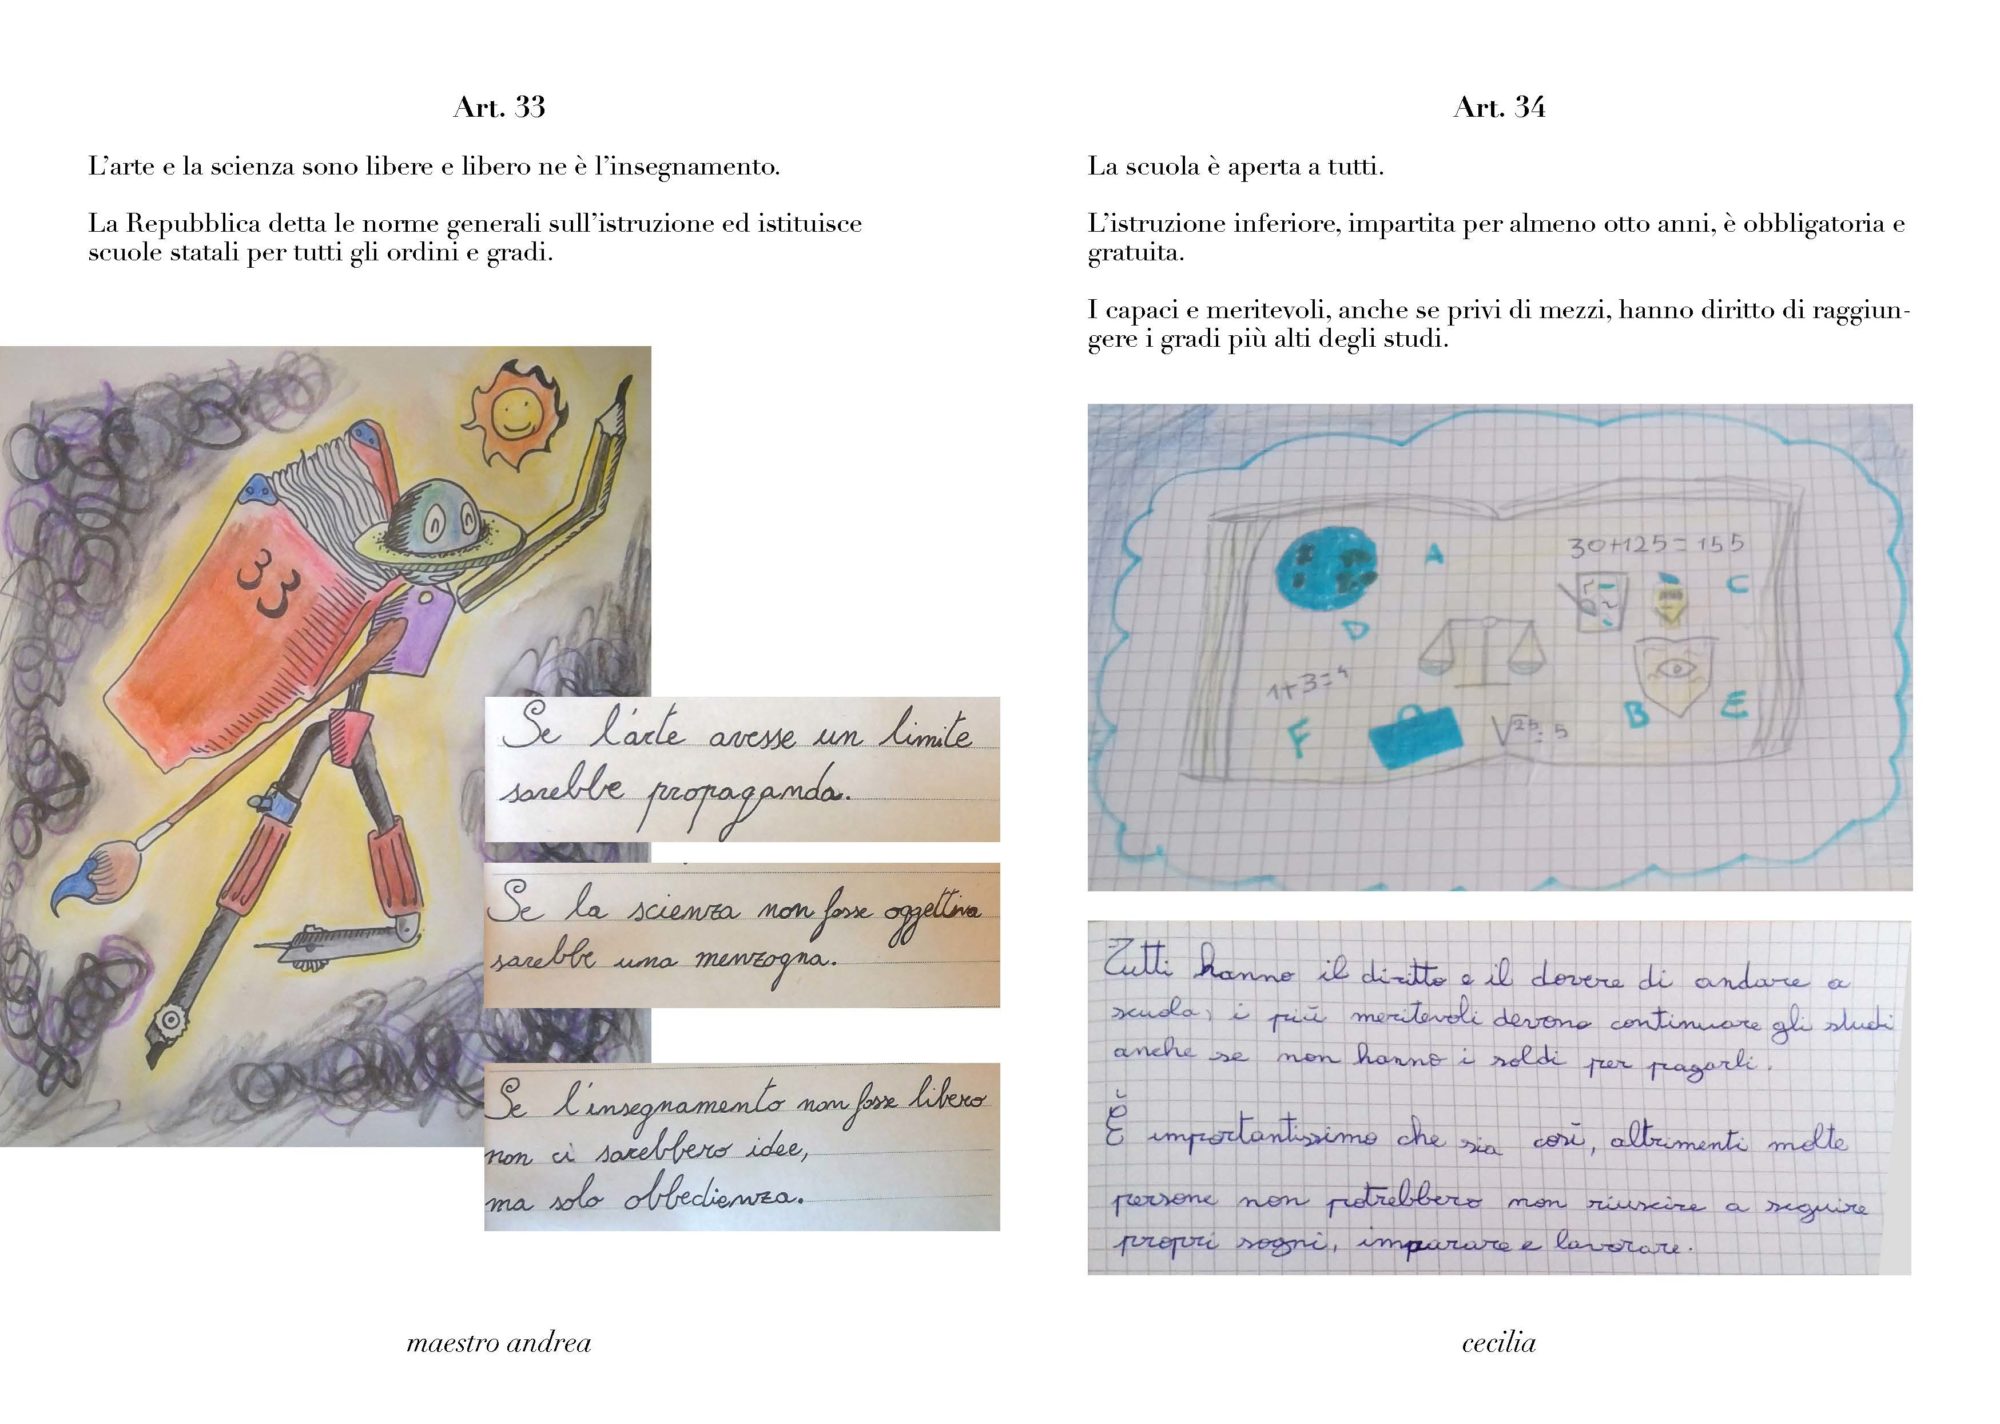 Art. 33
L'arte e la scienza sono libere e libero ne è l'insegnamento.
La Repubblica detta le norme generali sull'istruzione ed istituisce
scuole statali per tutti gli ordini e gradi.
33
Se l'arte avesse un limite
sarebbe propaganda.
Se la scienza non fosse oggettiva
sarebbe una menzogna.
Se l'insegnamento non fosse libero
non ci sarebbero idee,
ma solo obbedienza.
maestro andrea
Art. 34
La scuola è aperta a tutti.
L'istruzione inferiore, impartita per almeno otto anni, è obbligatoria e
gratuita.
I capaci e meritevoli, anche se privi di mezzi, hanno diritto di raggiun-
gere i gradi più alti degli studi.
30+125=155
A
C
D
1+3=4
B
E
F
√25=5
Tutti hanno il diritto e il dovere di andare a
scuola, i più meritevoli devono continuare gli studi
anche se non hanno i soldi per pagarli.
È importantissimo che sia così, altrimenti molte
persone non potrebbero non riuscire a seguire
propri sogni, imparare e lavorare.
cecilia